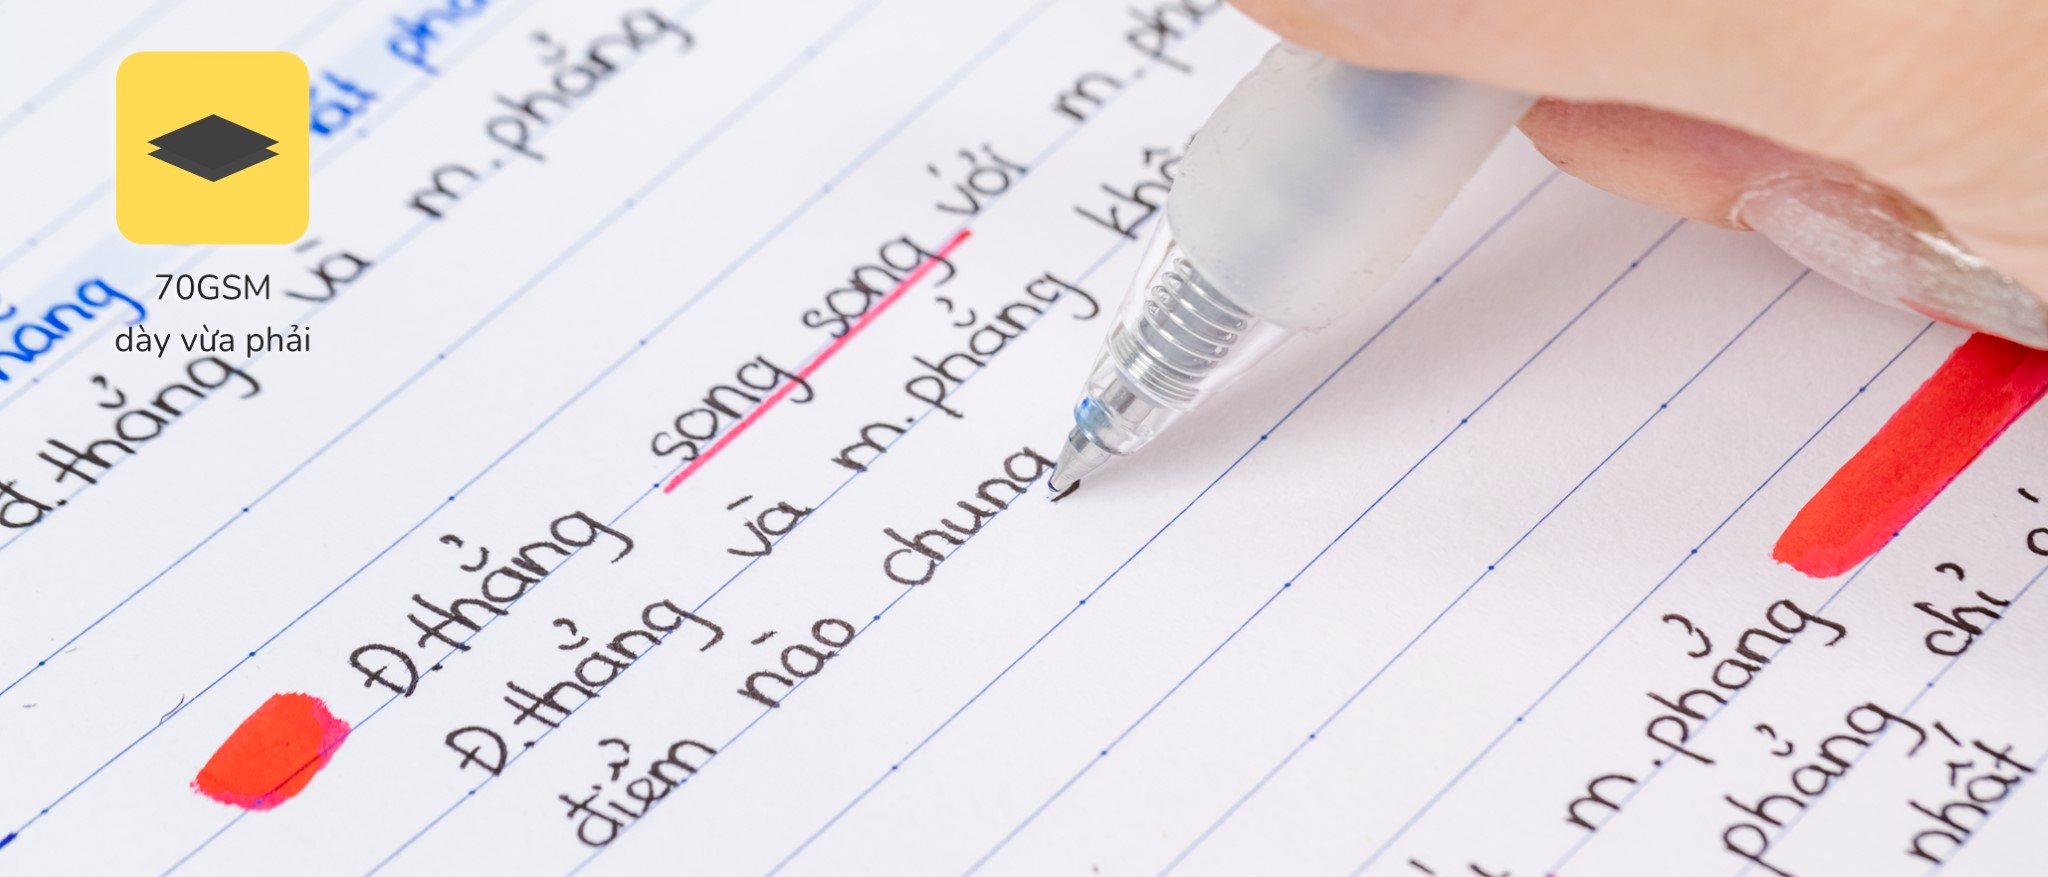 70GSM
dày vừa phải
phẳng
đ.thẳng và m.phẳng
Đ.thẳng song song với m.
Đ.thẳng và m.phẳng
điểm nào chung
m.phẳng
phẳng chỉ
nhất